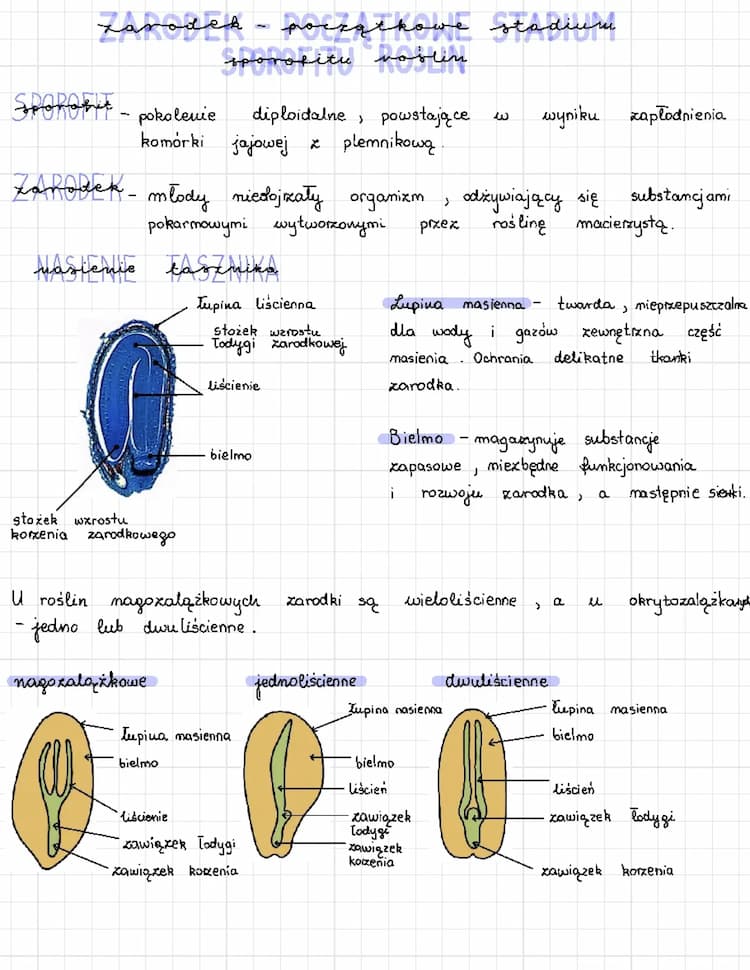 ZARODEK - POCZĄTKOWE STADIUM
SPOROFITU ROŚLIN
SPOROFIT - pokolenie diploidalne, powstające w wyniku zapłodnienia
komórki jajowej z plemnikową.
ZARODEK - młody niedojrzały organizm, odżywiający się substancjami
pokarmowymi wytworzonymi przez roślinę macierzystą.
NASIENIE TASZNIKA
łupina liścienna
stożek wzrostu
łodygi zarodkowej
liścienie
bielmo
stożek wzrostu
korzenia zarodkowego
Łupina nasienna - twarda, nieprzepuszczalna
dla wody i gazów zewnętrzna część
nasienia. Ochrania delikatne tkanki
zarodka.
Bielmo - magazynuje substancje
zapasowe, niezbędne funkcjonowania
i rozwoju zarodka, a następnie siewki.
U roślin nagozalążkowych zarodki są wieloliścienne, a u okrytozalążkowych
- jedno lub dwuliścienne.
nagozalążkowe
łupina nasienna
bielmo
liścienie
zawiązek łodygi
zawiązek korzenia
jednoliścienne
łupina nasienna
bielmo
liścień
zawiązek
łodygi
zawiązek
korzenia
dwuliścienne
łupina nasienna
bielmo
liścień
zawiązek łodygi
zawiązek korzenia